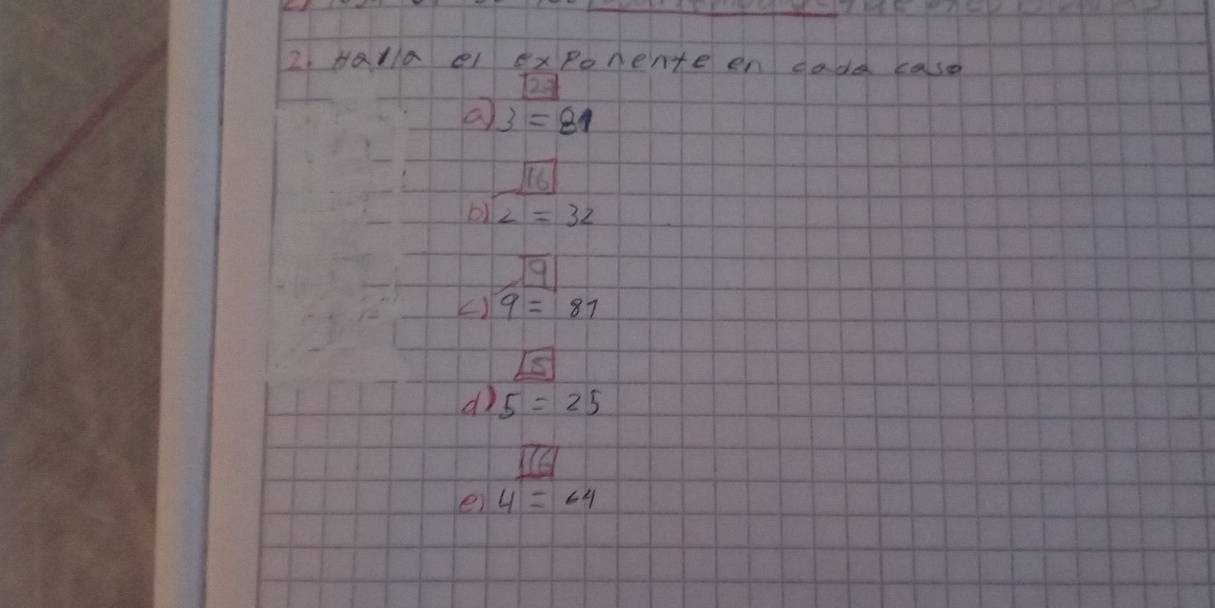 2. Halla el exponente en cada caso
27
a) 3 = 81
16
b) 2 = 32
9
c) 9 = 81
5
d) 5 = 25
16
e) 4 = 64